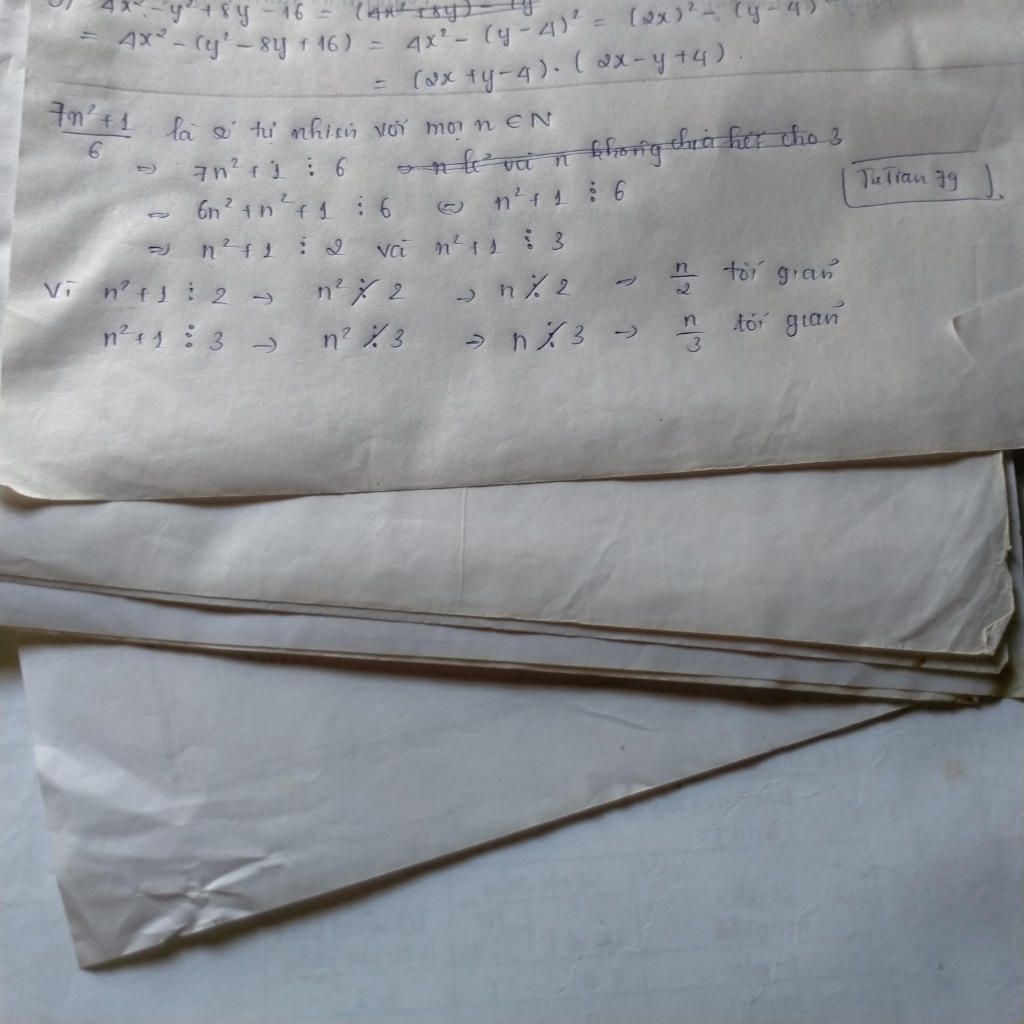 4x² - y² + 8y - 16 = (4x² + 8y) - (y
= 4x² - (y² - 8y + 16) = 4x² - (y - 4)² = (2x)² - (y - 4)
= (2x + y - 4) . (2x - y + 4).
7n² + 1 / 6 là số tự nhiên với mọi n ∈ N
=> 7n² + 1 ⋮ 6 => n lẻ và n không chia hết cho 3
= 6n² + n² + 1 ⋮ 6 <=> n² + 1 ⋮ 6
TuTran79
=> n² + 1 ⋮ 2 và n² + 1 ⋮ 3
Vì n² + 1 ⋮ 2 → n² ⋮̸ 2 → n ⋮̸ 2 → n/2 tối giản
n² + 1 ⋮ 3 → n² ⋮̸ 3 → n ⋮̸ 3 → n/3 tối giản